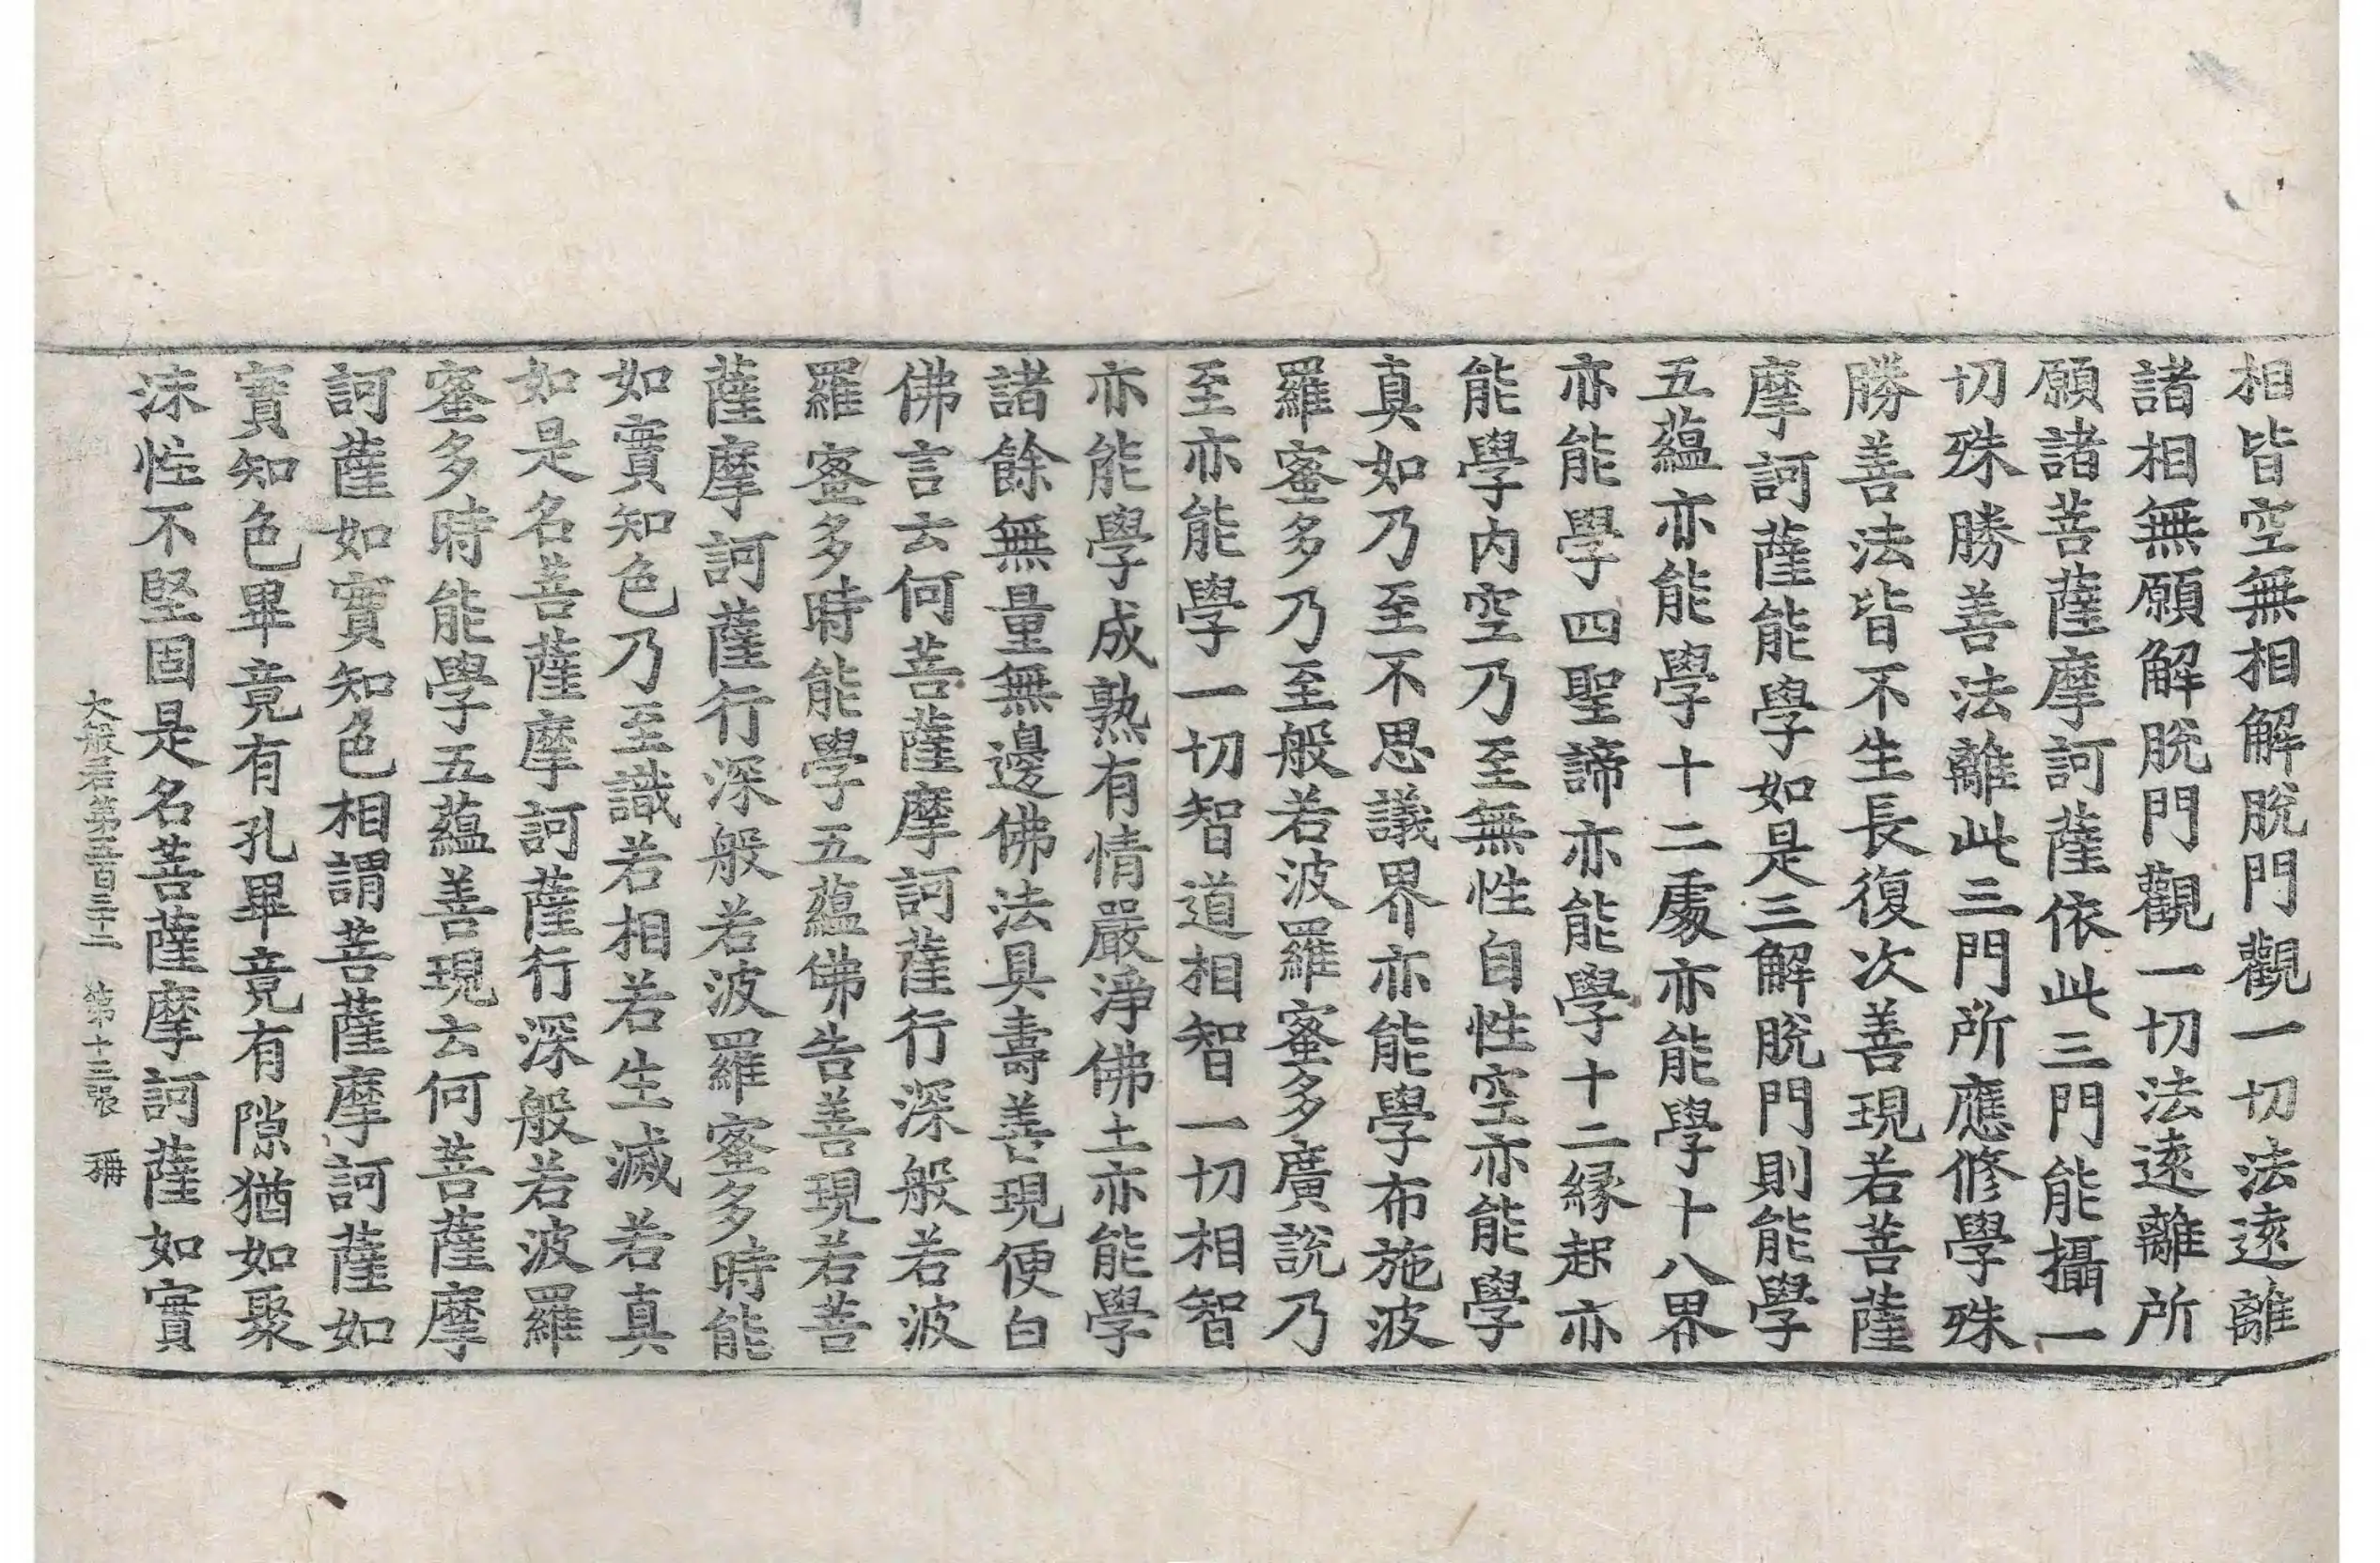 相皆空無相解脫門觀一切法遠離
諸相無願解脫門觀一切法遠離所
願諸菩薩摩訶薩依此三門能攝一
切殊勝善法離此三門所應修學殊
勝善法皆不生長復次善現若菩薩
摩訶薩能學如是三解脫門則能學
五蘊亦能學十二處亦能學十八界
亦能學四聖諦亦能學十二緣起亦
能學內空乃至無性自性空亦能學
真如乃至不思議界亦能學布施波
羅蜜多乃至般若波羅蜜多廣說乃
至亦能學一切智道相智一切相智
亦能學成熟有情嚴淨佛土亦能學
諸餘無量無邊佛法具壽善現便白
佛言云何菩薩摩訶薩行深般若波
羅蜜多時能學五蘊佛告善現若菩
薩摩訶薩行深般若波羅蜜多時能
如實知色乃至識若相若生滅若真
如是名菩薩摩訶薩行深般若波羅
蜜多時能學五蘊善現云何菩薩摩
訶薩如實知色相謂菩薩摩訶薩如
實知色畢竟有孔畢竟有隙猶如聚
沫性不堅固是名菩薩摩訶薩如實
大般若第五百三十二 第十三張 稱